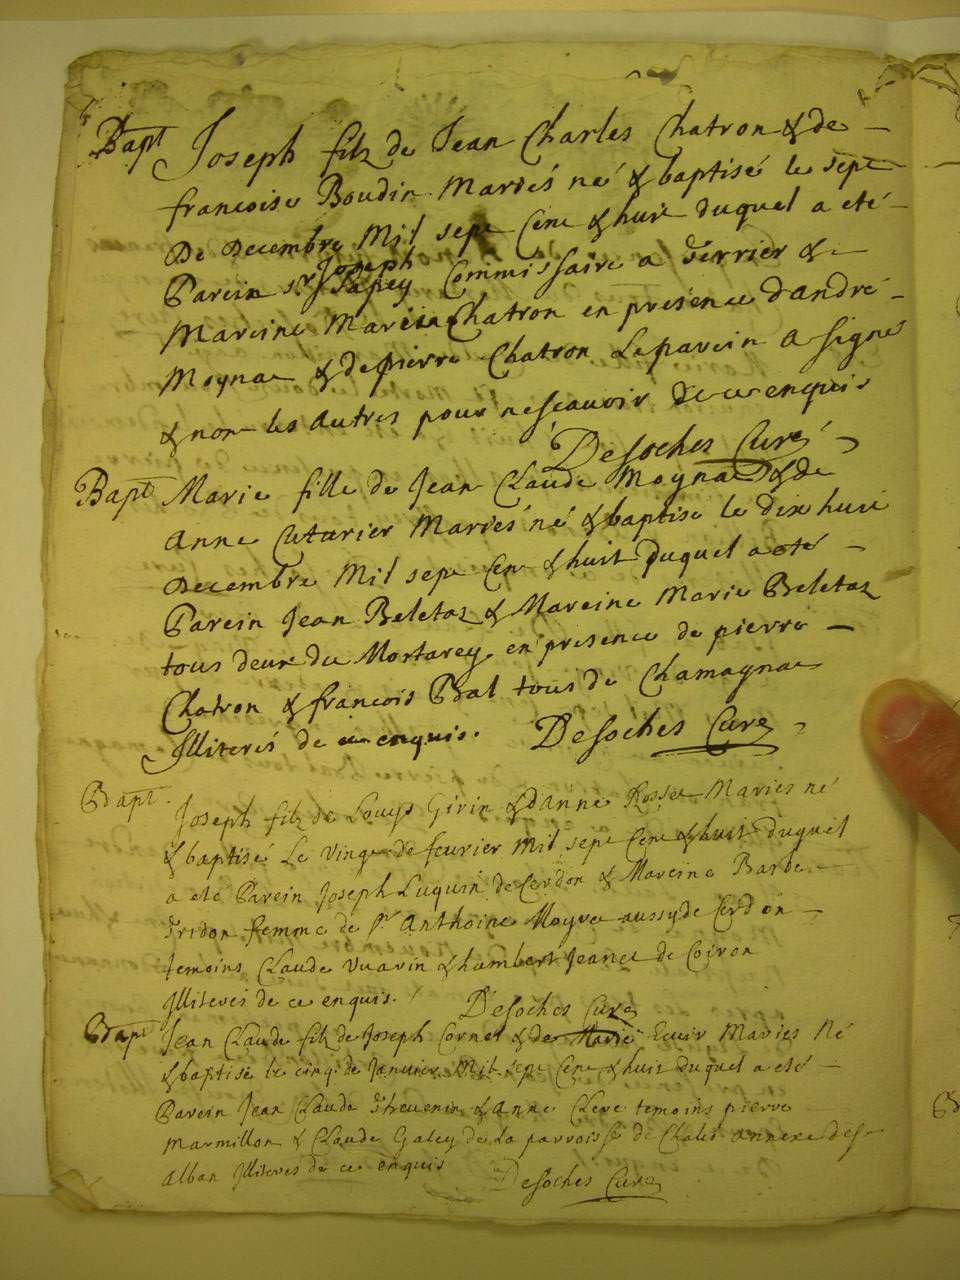 Bapt Joseph filz de Jean Charles Chatron & de
francoise Boudin Mariés né & baptisé le sept
De Decembre Mil sept Cent & huit duquel a eté
Parein sr Joseph Papey Commissaire a Terrier &
Mareine Marie Chatron en presence d'andré
Moynat & de pierre Chatron Leparein a signé
& non les autres pour ne scavoir de ce enquis
Desoches Curé
Bapt Marie fille de Jean Claude Moynat & de
Anne Cuturier Mariés né & baptisé le dix huit
Decembre Mil sept Cent & huit duquel a eté
Parein Jean Beletaz & Mareine Marie Beletaz
tous deux du Mortarey en presence de pierre
Chatron & francois Bal tous de Chamagnat
Illiterés de ce enquis. Desoches Curé
Bapt Joseph filz de Louys Girin & d'Anne Rosset Mariés né
& baptisé Le vingt de feurier Mil sept Cent & huit duquel
a eté Parein Joseph Luquin de Cerdon & Mareine Barbe
Tridon femme de Sr Anthoine Moyret aussy de Cerdon
Temoins Claude vuarin & humbert Jeanet de Coiron
Illiterés de ce enquis. Desoches Curé
Bapt Jean Claude filz de Joseph Cornet & de Marie Ecuir Mariés Né
& baptisé le cinq de Januier Mil sept Cent & huit duquel a eté
Parein Jean Claude Theuenin & Anne Clere temoins pierre
Marmillon & Claude Galey de La parroisse de Chalis annexe de st
Alban Illiterés de ce enquis Desoches Curé